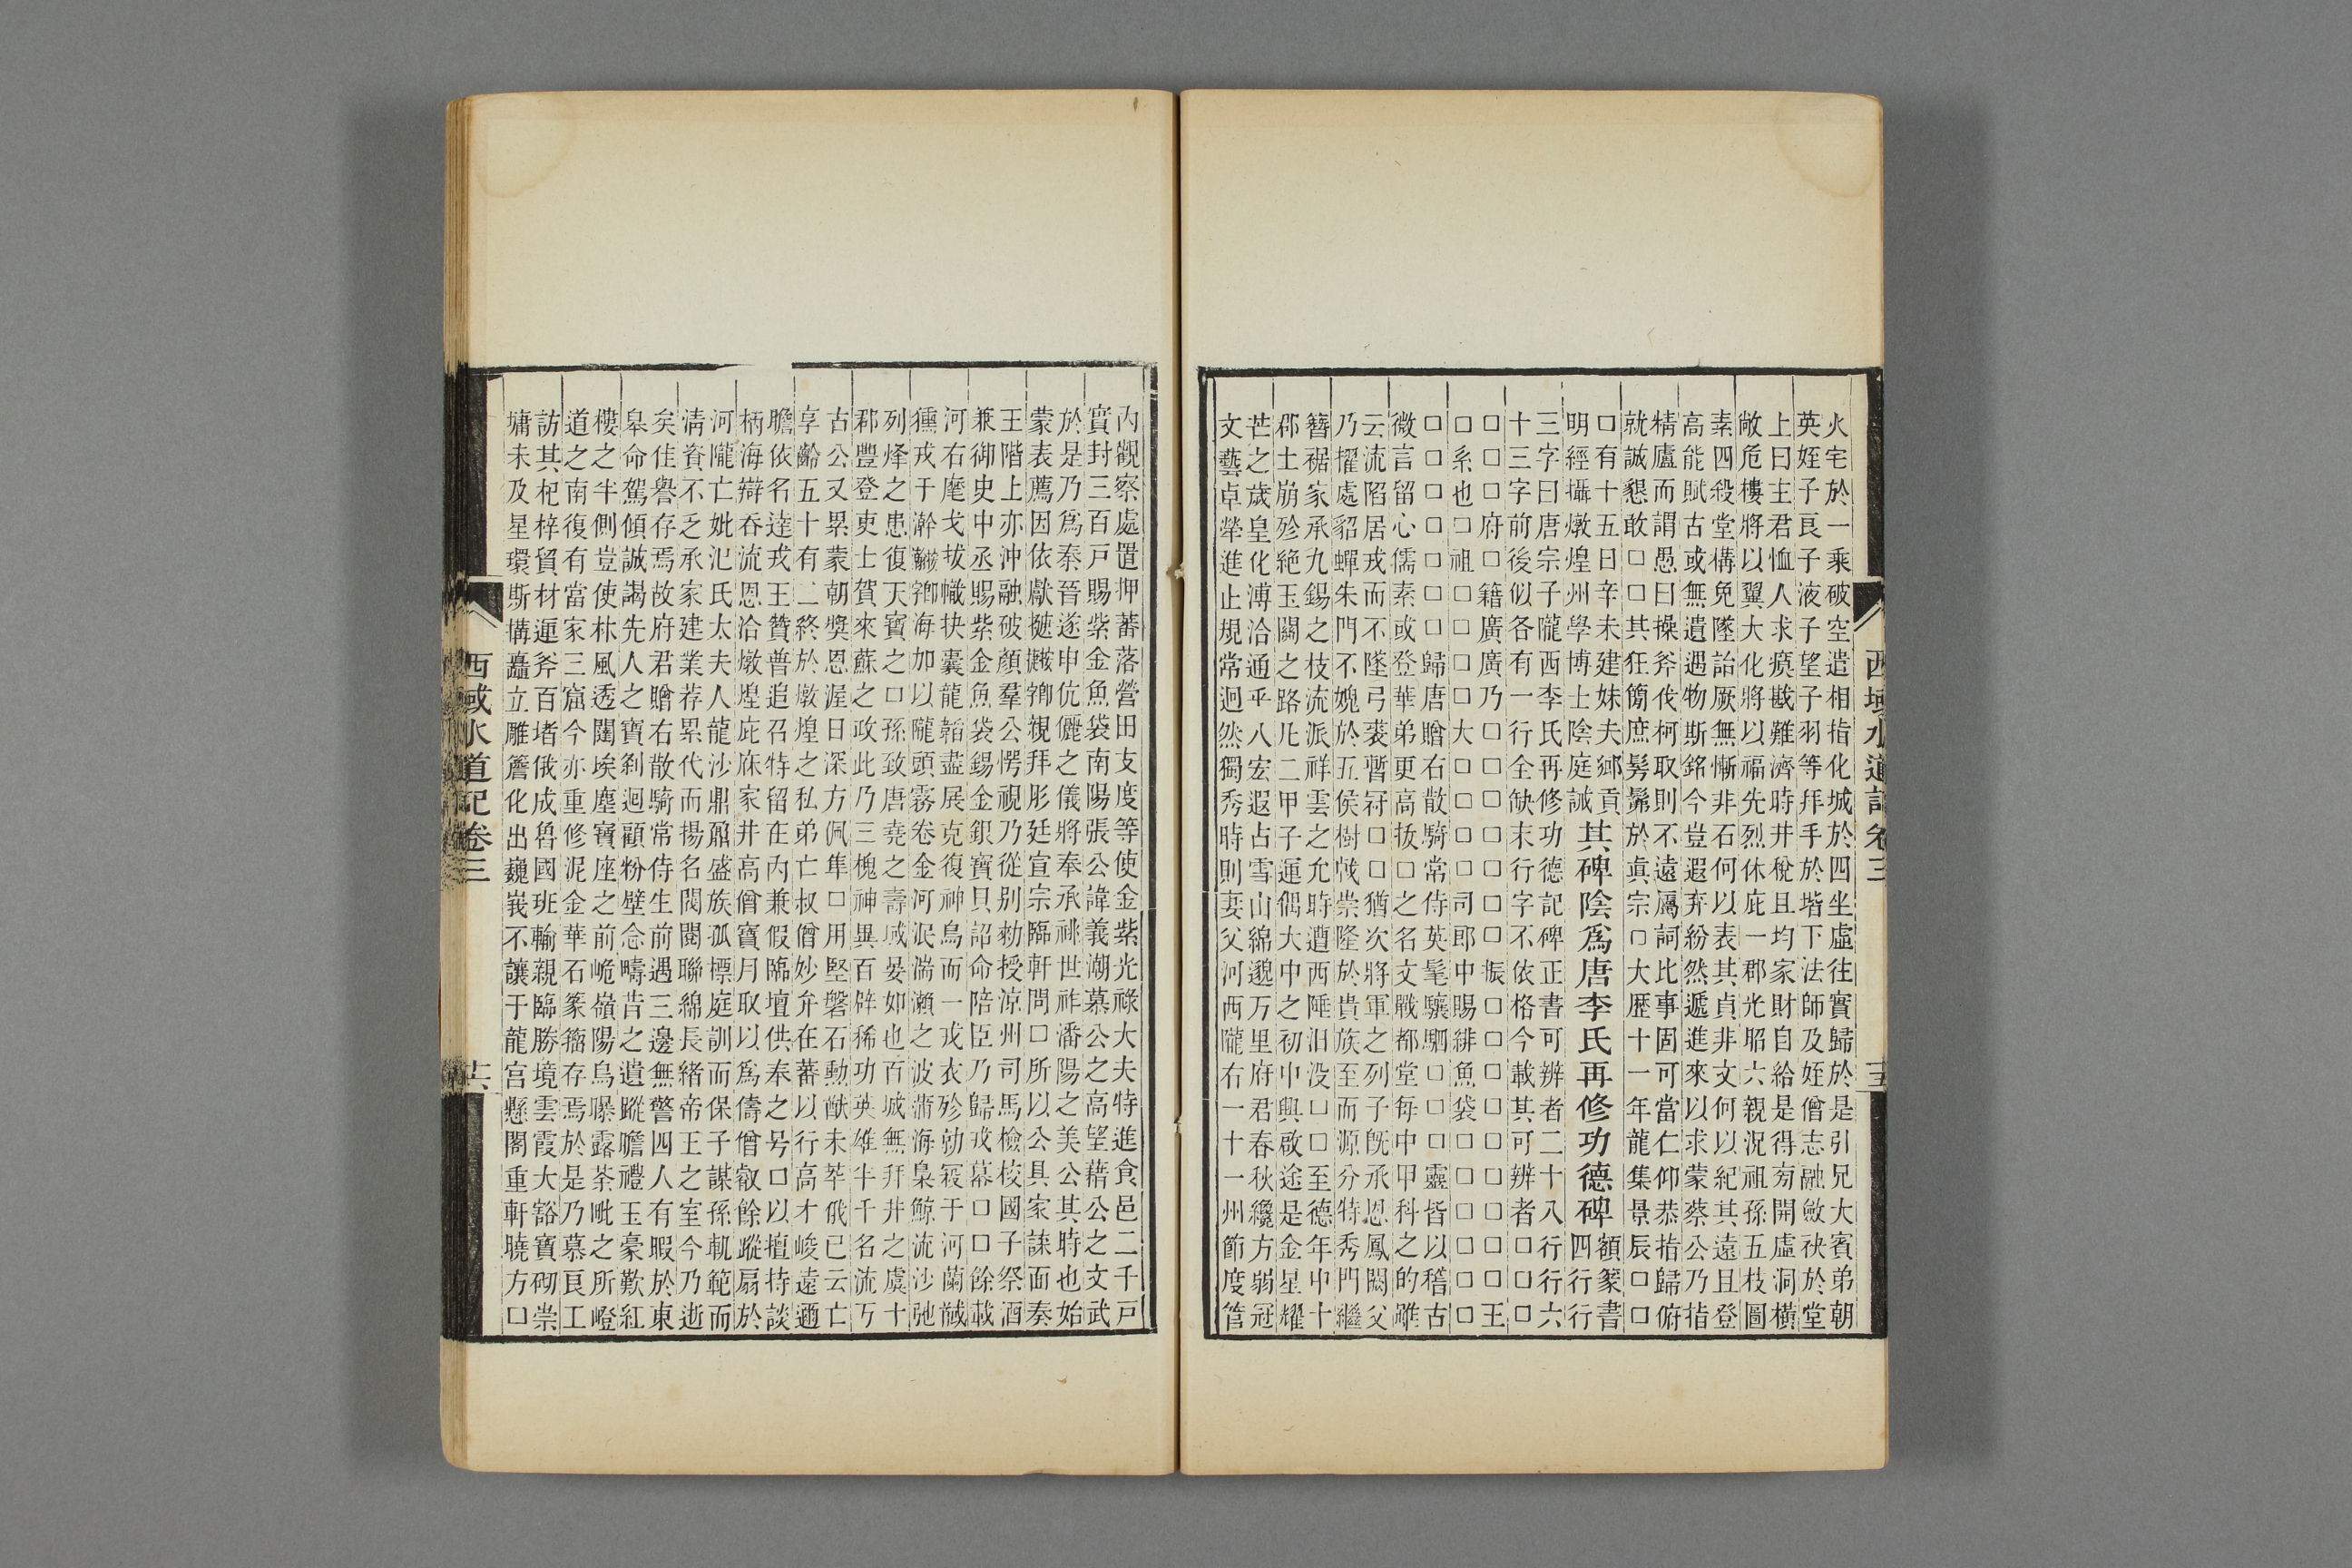 火宅於一乘破空遣相指化城於四坐虛往實歸於是引兄大賓弟朝
英姪子良子液子望子羽等拜手於堦下法師及姪僧志融斂袂於堂
上曰主君恤人求瘼戡難濟時井稅且均家財自給是得旁開虛洞橫
敞危樓將以翼大化將以福先烈休庇一郡光昭六親況祖孫五枝圖
素四殺堂構免墜詒厥無慚非石何以表其貞非文何以紀其遠且登
高能賦古或無遺遇物斯銘今豈遐弃紛然遞進來以求蒙蔡公乃指
精廬而謂愚曰操斧伐柯取則不遠屬詞比事固可當仁仰恭指歸俯
就誠懇敢口口其狂簡庶髣髴於眞宗口大歷十一年龍集景辰口口
口有十五日辛未建妹夫鄉貢
明經攝燉煌州學博士陰庭誡
其碑陰爲唐李氏再修功德碑
額篆書
四行行
三字曰唐宗子隴西李氏再修功德記碑正書可辨者二十八行行六
十三字前後似各有一行全缺末行字不依格今載其可辨者口口口
口口口府口籍廣廣乃口口口口口口口口振口口口口口口口口口王
口系也口祖口口口口大口口口口司郎中賜緋魚袋口口口口口口
口口口口口口口歸唐贈右散騎常侍英髦驥駟口口口靈皆以稽古
微言留心儒素或登華弟更高拔口之名文戰都堂每中甲科之的雖
云流陷居戎而不墜弓裘暫冠口口猶次將軍之列子旣承恩鳳闕父
乃擢處貂蟬朱門不媿於五侯樹戟崇隆於貴族至而源分特秀門繼
簪裾家承九錫之枝流派祥雲之允時遭西陲汩没口口至德年中十
郡土崩殄絶玉關之路凡二甲子運偶大中之初中興啟途是金星耀
芒之歲皇化溥洽通乎八宏遐占雪山綿邈万里府君春秋纔方弱冠
文藝卓犖進止規常迥然獨秀時則妻父河西隴右一十一州節度管
西域水道記卷三
十五
內觀察處置押蕃落營田支度等使金紫光祿大夫特進食邑二千戸
實封三百戸賜紫金魚袋南陽張公諱義潮慕公之高望藉公之文武
於是乃爲秦晉遂申伉儷之儀將奉承祧世祚潘陽之美公其時也始
蒙表薦因依獻捷親拜彤廷宣宗臨軒問口所以公具家諜面奏
王階上亦沖融破顏羣公愕視乃從别勑授涼州司馬檢校國子祭酒
兼御史中丞賜紫金魚袋錫金銀寶貝詔命陪臣乃歸戎幕口口餘載
河右麾戈拔幟抉囊龍韜盡展克復神鳥而一戎衣殄勍寇于河蘭馘
獯戎于澣海加以隴頭霧卷金河泯湍瀨之波蒲海梟鯨流沙弛
列烽之患復天寶之口孫致唐堯之壽域晏如也百城無拜井之虞十
郡豐登吏士賀來蘇之政此乃三槐神異百辟稀功英雄半千名流万
古公又累蒙朝獎恩渥日深方佩隼口用堅磐石勳猷未萃俄已云亡
享齡五十有二終於燉煌之私弟亡叔僧妙弁在蕃以行高才峻遠邇
瞻依名達戎王贊普追召特留在內兼假臨壇供奉之号口以擅持談
柄海辯吞流恩洽燉煌庇庥家井高僧寶月取以爲儔僧叡餘蹤扇於
河隴亡妣氾氏太夫人龍沙鼎鼐盛族孤標庭訓而保子謀孫軌範而
淸資不乏承家建業荐累代而揚名閥閱聯綿長緒帝王之室今乃逝
矣佳譽存焉故府君贈右散騎常侍生前遇三邊無警四人有暇於東
皋命駕傾誠謁先人之寶刹迴顧粉壁念疇昔之遺蹤瞻禮玉豪歎紅
樓之半側豈使林風透闥埃塵寶座之前峗嶺陽烏曝露茶毗之所嶝
道之南復有當家三窟今亦重修泥金華石篆籀存焉於是乃慕良工
訪其杞梓貿材運斧百堵俄成魯國班輸親臨勝境雲霞大豁寶砌崇
墉未及星環斯構矗立雕簷化出巍峩不讓于龍宮懸閣重軒曉方口
西域水道記卷三
十六